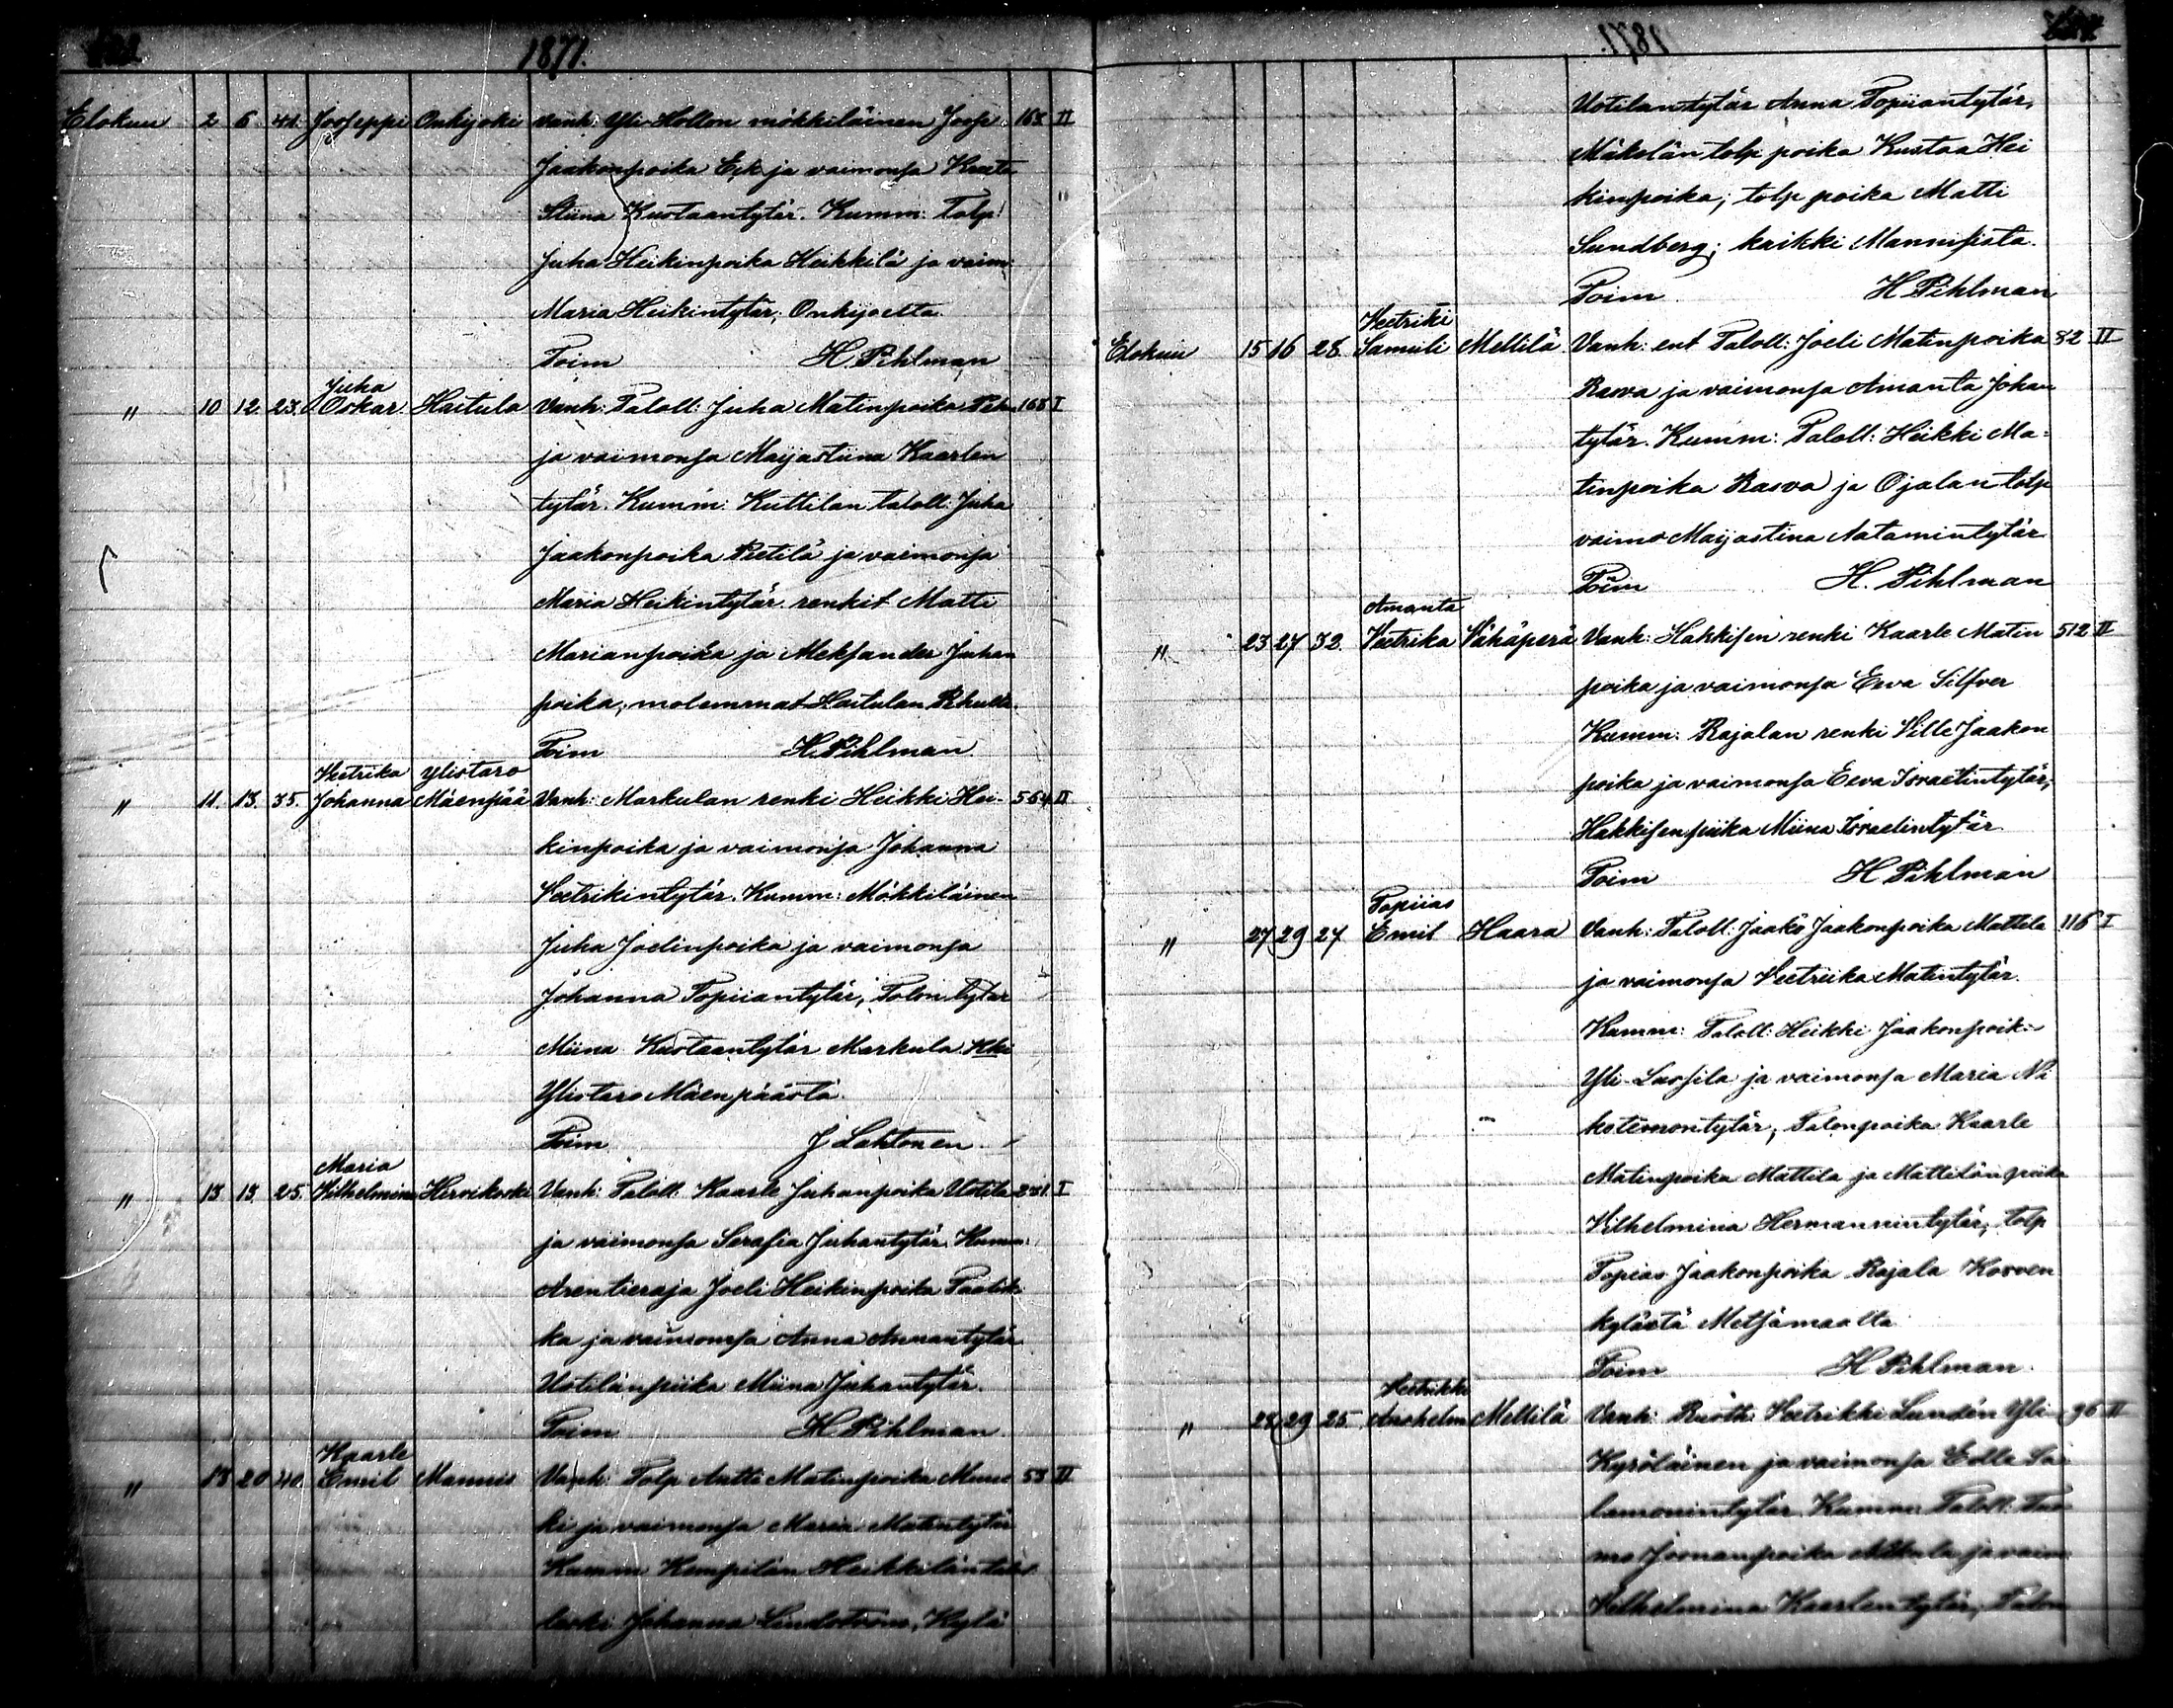 1871.
Elokuu 2 6 41. Jooseppi Onkijoki Vanh: Yli-Hollon mökkiläinen Joosp. 163 II
Jaakonpoika Erk ja vaimonsa Kreeta
Stiina Kustaantytär. Kumm: Tolp:
Juha Heikinpoika Heikkilä ja vaim:
Maria Heikintytär, Onkijoelta.
Toim H. Pihlman
Juha
" 10 12 23. Oskar Haitula Vanh: Taloll: Juha Matinpoika 168 I
ja vaimonsa Maijastiina Kaarlen
tytär. Kumm: Kuttilan taloll: Juha
Jaakonpoika Pietilä ja vaimonsa
Maria Heikintytär. renkit Matti
Marianpoika ja Aleksander Juhan
poika, molemmat Haitulan
Toim H. Pihlman
Veetrika Ylistaro
" 11. 13. 35. Johanna Mäenpää Vanh: Markulan renki Heikki Hei- 554 II
kinpoika ja vaimonsa Johanna
Veetrikintytär. Kumm: Mökkiläinen
Juha Joelinpoika ja vaimonsa
Johanna Topiiantytär, Talon tytär
Miina Kustaantytär Markula
Ylistaro Mäenpäästä.
Toim J Lahtonen
Maria
" 13 13. 25. Vilhelmina Hirvikoski Vanh: Taloll. Kaarle Juhanpoika Uotila 231. I
ja vaimonsa Serafia Juhantytär. Kumm:
Arentieraja Joeli Heikinpoika Paatik
ka ja vaimonsa Anna Annantytär
Uotilan piika Miina Juhantytär.
Toim H. Pihlman
Kaarle
" 13 20 40. Emil Mannis Vanh: Tolp Antti Matinpoika 53 II
ki ja vaimonsa Maria Matintytär
Kumm Kempilän Heikkilän
leski Johanna Lindström, Kylä
1871.
Uotilan tytär Anna Topiiantytär,
Mäkelän tolp poika Kustaa Hei
kinpoika; tolp poika Matti
Sundberg; kaikki Mannisista.
Toim H Pihlman
Veetriki
Elokuu 15 16 28. Samuli Mellilä Vanh: ent Taloll: Joeli Matinpoika 82 II
Rasva ja vaimonsa Amanta Johan
tytär. Kumm: Taloll: Heikki Ma-
tinpoika Rasva ja Ojalan tolp
vaimo Maijastina Aatamintytär
Toim H. Pihlman
Amanta
" 23 27 32. Veetrika Vähäperä Vanh: Hakkisen renki Kaarle Matin 512 II
poika ja vaimonsa Eeva Silfver
Kumm: Rajalan renki Ville Jaakon
poika ja vaimonsa Eeva Israelintytär,
Hakkisen piika Miina Israelintytär
Toim H Pihlman
Topiias
" 27 29 27 Emil Haara Vanh: Taloll: Jaako Jaakonpoika Mattila 116 I
ja vaimonsa Veetriika Matintytär.
Kumm: Taloll: Heikki Jaakonpoik:
Yli-Laosila ja vaimonsa Maria Ni
kotemontytär, Talonpoika Kaarle
Matinpoika Mattila ja Mattilan piika
Vilhelmina Hermannintytär, tolp
Topias Jaakonpoika Rajala Korven
kylästä Metsämaalta
Toim H Pihlman.
Heetrikki
" 28 29 25 Anshelm Mellilä Vanh: Ruoth: Heetrikki Lundén Yli- 96 II
Kyröläinen ja vaimonsa Edla Sa
lamonintytär. Kumm: Taloll: Tuo
mo Joonanpoika ja vaim:
Vilhelmina Kaarlentytär, Talon